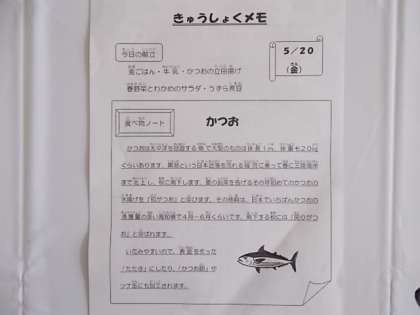 きゅうしょくメモ
今日の献立
5/20
(金)
麦ごはん・牛乳・かつおの立田揚げ
春野菜とわかめのサラダ・うずら煮豆
食べ物ノート
かつお
かつおは太平洋を回遊する魚で大型のものは体長1m、体重も20kg
くらいあります。黒潮という日本近海を流れる
まで北上し、秋に南下します。夏の到来を告げるその年初めてのかつおの
水揚げを「初がつお」と呼びます。その時期は、日本でいちばんかつおの
漁獲量の多い高知県で4月~6月くらいです。南下する秋には「戻りがつ
お」と呼ばれます。
いたみやすいので、表面を炙った
「たたき」にしたり、「かつお節」や
ツナ缶にも加工されます。